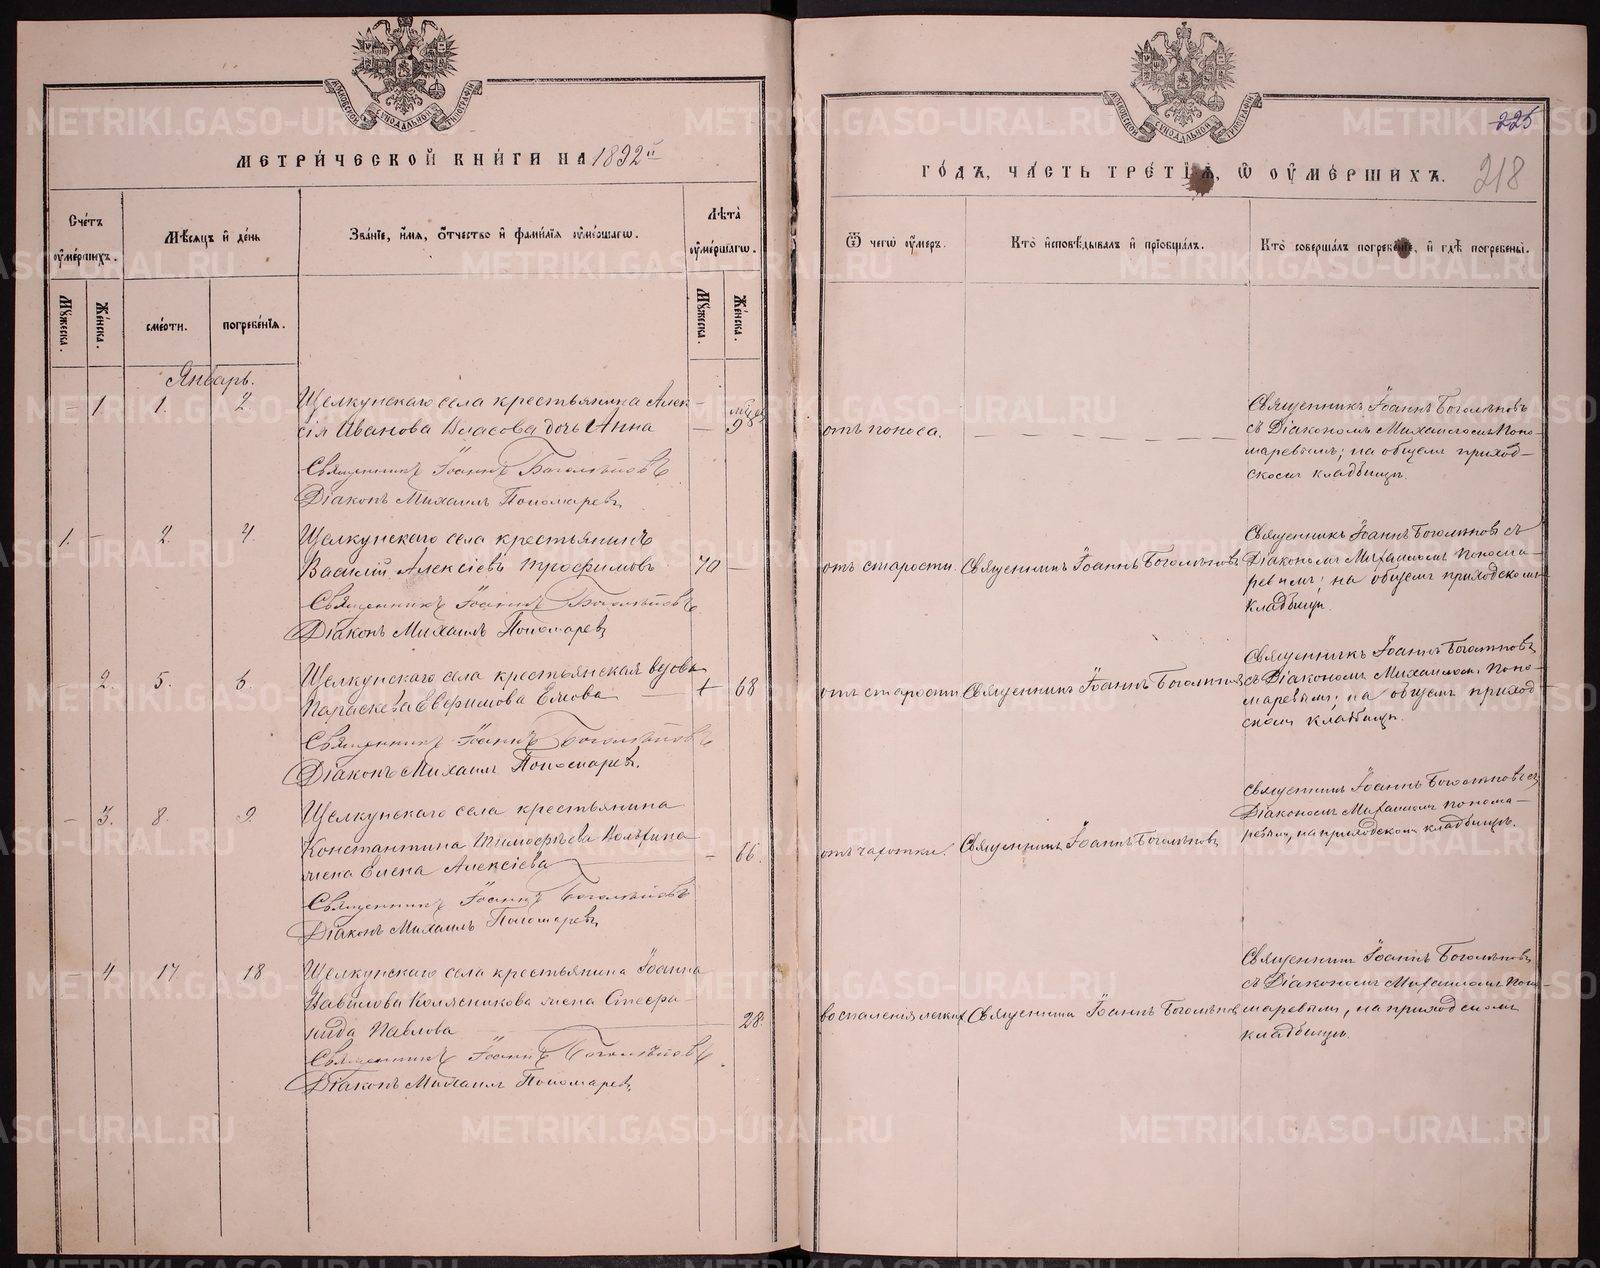 МОСКОВСКОЙ СУНОДАЛЬНОЙ ТИПОГРАФІИ
МЕТРИ́ЧЕСКОЙ КНИ́ГИ НА 1892й
Сче́тъ ѹ҆ме́ршихъ.
Мѣ́сяцъ и҆ де́нь
Зва́нїе, и҆́мя, ѻ҆́тчество и҆ фами́лїя ѹ҆ме́ршагѡ.
Лѣ́та ѹ҆ме́ршагѡ.
Мꙋ́жеска.
Же́нска.
сме́рти.
погребе́нїя.
Мꙋ́жеска.
Же́нска.
Январь.
– 1 1. 2. Щелкунскаго села крестьянина Алек- –
сія Иванова Власова дочь Анна – 9
Священникъ Іоаннъ Боголѣповъ
Діаконъ Михаилъ Пономаревъ
1. – 2. 4. Щелкунскаго села крестьянинъ
Василій Алексіевъ Трофимовъ 70 –
Священникъ Іоаннъ Боголѣповъ
Діаконъ Михаилъ Пономаревъ
– 2. 5. 6. Щелкунскаго села крестьянская вдова
Параскева Евфимова 68
Священникъ Іоаннъ Боголѣповъ
Діаконъ Михаилъ Пономаревъ.
– 3. 8. 9. Щелкунскаго села крестьянина
Константина Тимофѣева
жена Елена Алексіева – 66.
Священникъ Іоаннъ Боголѣповъ
Діаконъ Михаилъ Пономаревъ
– 4 17. 18 Щелкунскаго села крестьянина Іоанна
Колясникова жена Стефа-
нида Павлова 28.
Священникъ Іоаннъ Боголѣповъ
Діаконъ Михаилъ Пономаревъ
МОСКОВСКОЙ СУНОДАЛЬНОЙ ТИПОГРАФІИ
225
ГО́ДЪ, ЧА́СТЬ ТРЕ́ТЇЯ, Ѡ҆ ОУ҆МЕ́РШИХЪ.
218
Ѿ чегѡ̀ ѹ҆́меръ.
Кто̀ и҆сповѣ́дывалъ и҆ прїобща́лъ.
Кто̀ соверша́лъ погребе́нїе, и҆ гдѣ̀ погребены̀.
отъ поноса. – – – – – –
Священникъ Іоаннъ Боголѣповъ
съ Діакономъ Михаиломъ Поно-
маревымъ; на общемъ приход-
скомъ кладбищѣ.
отъ старости. Священникъ Іоаннъ Боголѣповъ
Священникъ Іоаннъ Боголѣповъ съ
Діакономъ Михаиломъ Понома-
ревымъ; на общемъ приходскомъ
кладбищѣ.
отъ старости Священникъ Іоаннъ Боголѣповъ
Священникъ Іоаннъ Боголѣповъ
съ Діакономъ Михаиломъ Поно-
маревымъ; на общемъ приход
скомъ кладбищѣ.
отъ чахотки. Священникъ Іоаннъ Боголѣповъ
Священникъ Іоаннъ Боголѣповъ съ
Діакономъ Михаиломъ Понома-
ревымъ, на приходскомъ кладбищѣ.
воспаленія легкихъ Священникъ Іоаннъ Боголѣповъ
Священникъ Іоаннъ Боголѣповъ
съ Діакономъ Михаиломъ Поно-
маревымъ, на приходскомъ
кладбищѣ.
METRIKI.GASO-URAL.RU